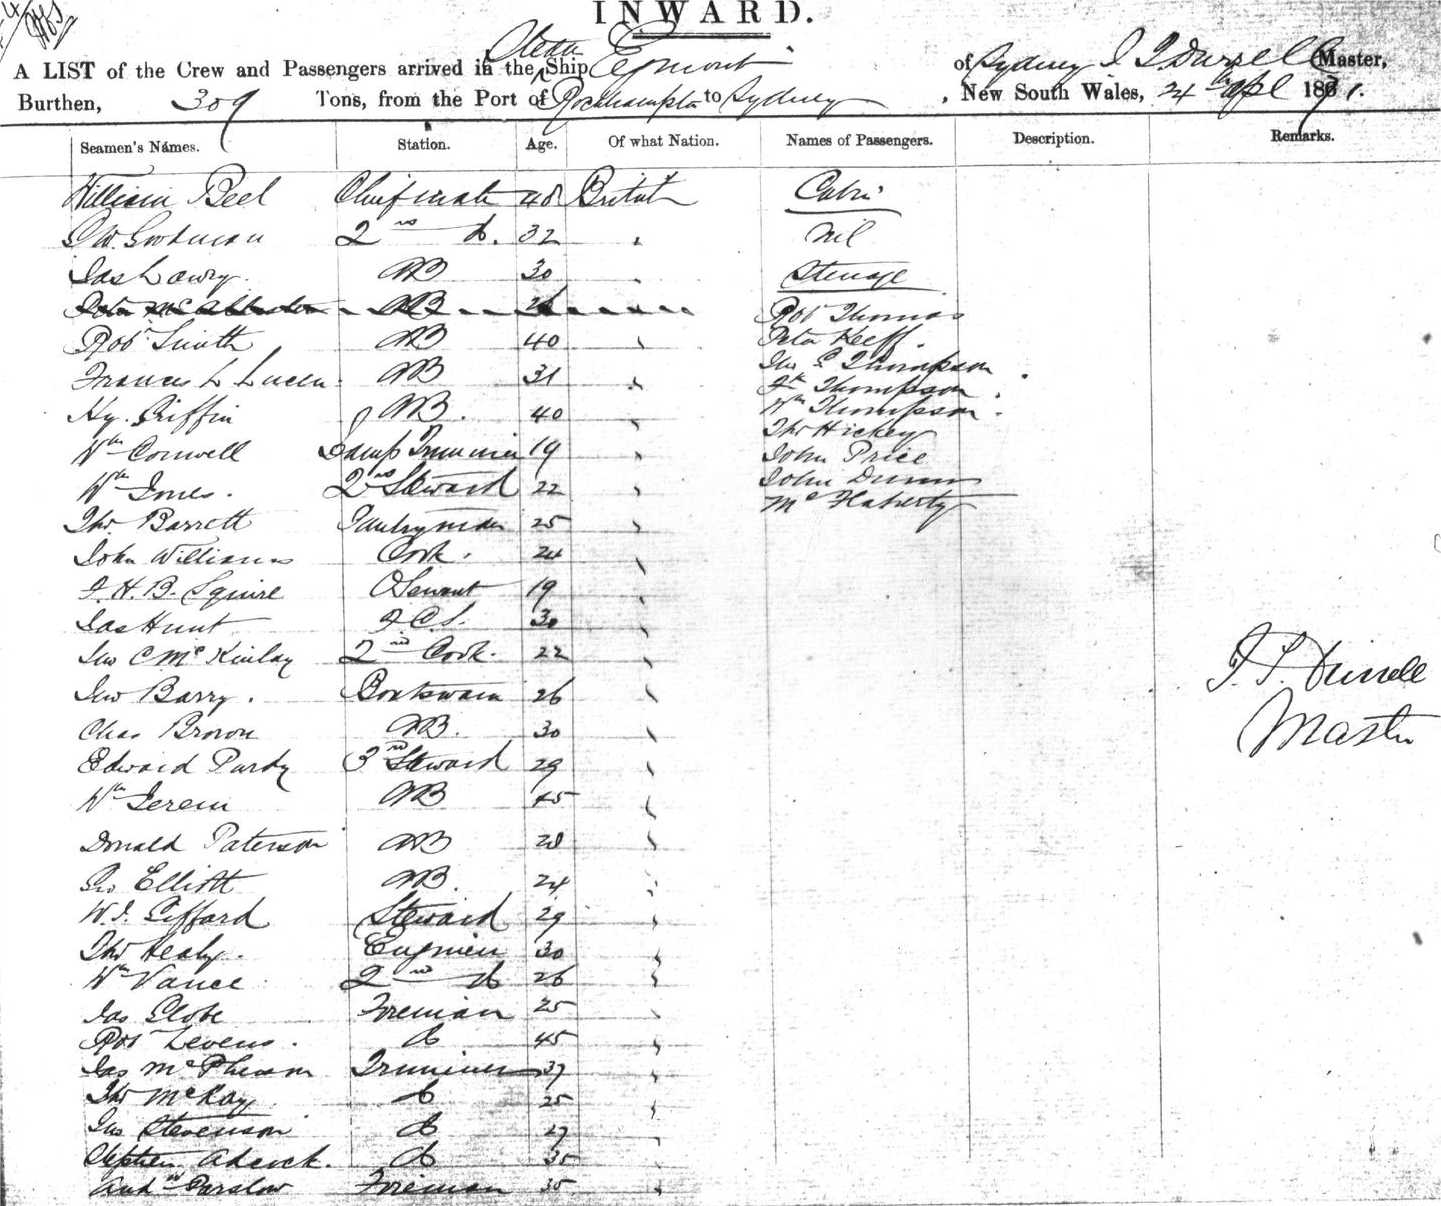 INWARD.
A LIST of the Crew and Passengers arrived in the Steam Ship Egmont of Sydney Master,
Burthen, 309 Tons, from the Port of Rockhampton to Sydney, New South Wales, 24th Apl 1871.
Seamen's Names. Station. Age. Of what Nation. Names of Passengers. Description. Remarks.
William Beel Chief mate 48 British Cabin
Goodman 2nd do. 32 " nil
Jas Lowry AB 30 " Steerage
AB
Robt Smith AB 40 "
Francis L Lucen AB 31 "
Hy. Griffin AB. 40 "
Wm Cornwell Lamp Trimmer 19 "
Wm Innes. 2nd Steward 22 "
Thos Barrett Pantryman 25 "
John Williams Cook. 24 "
J. H. B. Squire Servant 19 "
Jas Hunt F.C.S. 30 "
Jno C McKinlay 2nd Cook. 22 "
Jno Barry. Boatswain 26 "
Chas Brown AB. 30 "
Edward Purdy 3rd Steward 29 "
Wm AB 45 "
Donald Paterson AB 28 "
Geo Elliott AB. 24 "
W. J. Gifford Steward 29 "
Thos Healy. Engineer 30 "
Wm Vance 2nd do 26 "
Jas Globe Foreman 25 "
Robt Levens. do 45 "
Jas McPherson Trimmer 37 "
Thos McKay do 25 "
Jno Stevenson do 27 "
Stephen Adcock. do 35 "
Andw Parslow Foreman 35 "
Robt Thomas
Peter Keeff.
Jno G Thompson
Fk Thompson.
Wm Thompson.
Thos Hickey
John Price
John Dunn
Mc Flaherty
Master